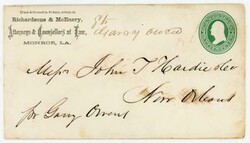 Richardsons & McEnery,
Attorneys & Counsellors at Law,
MONROE, LA.
Messrs John T Hardie & Co
New Orleans
for Garry Owens